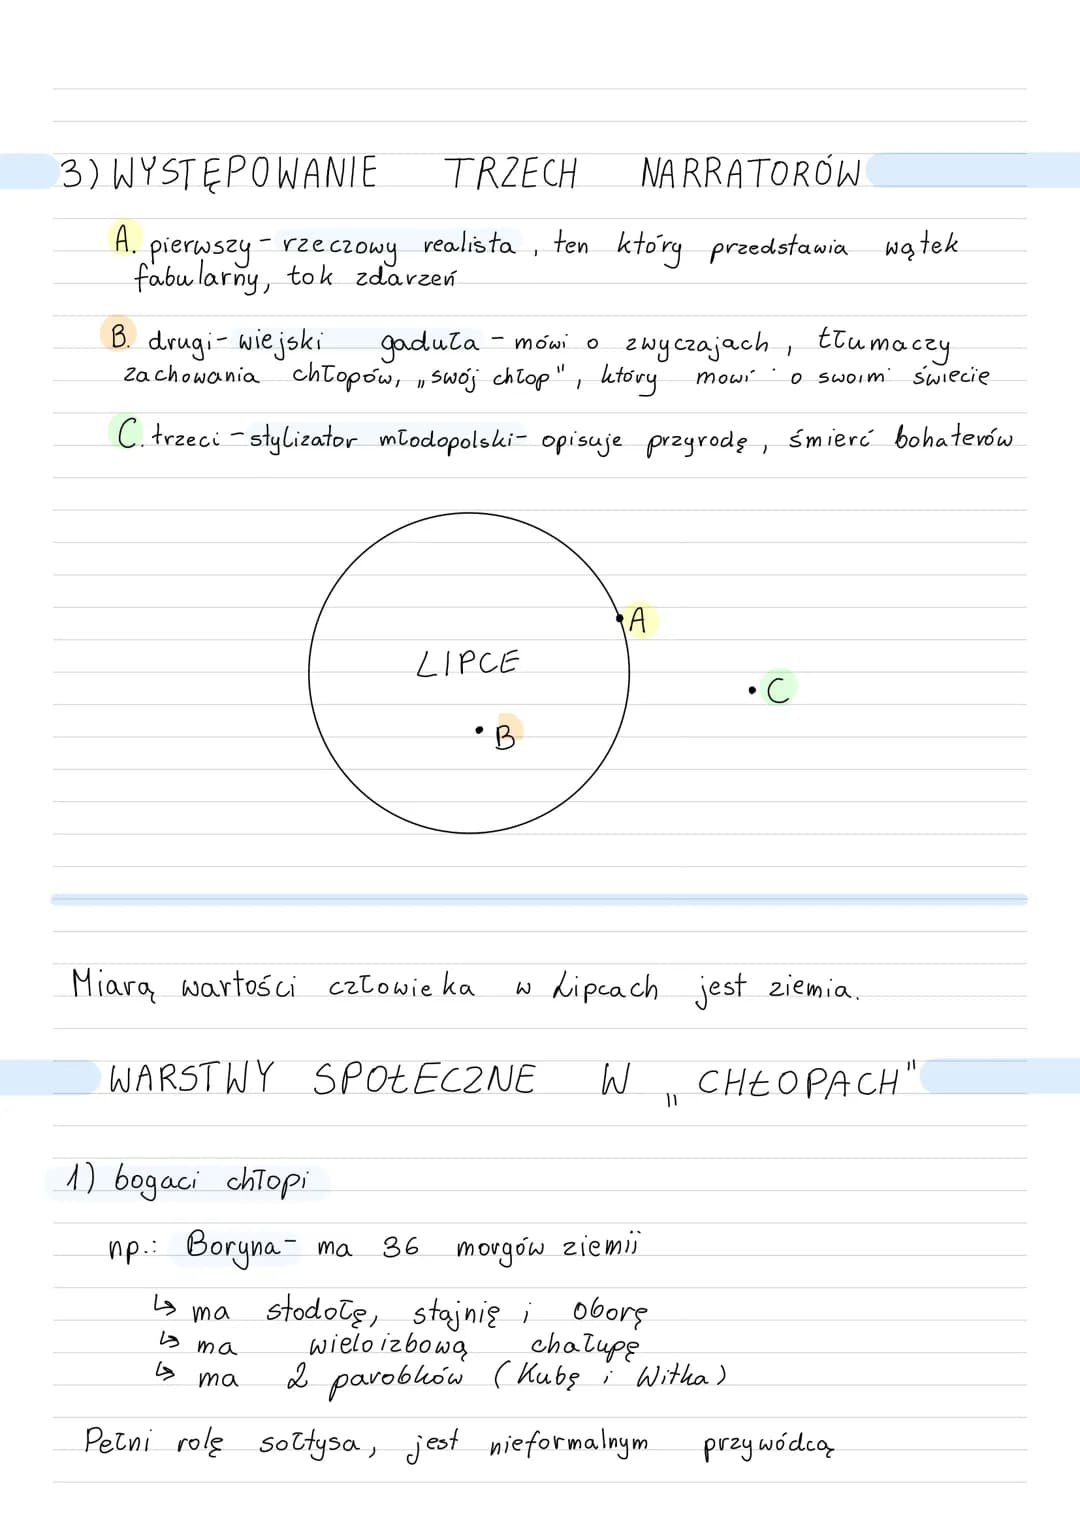 3) WYSTĘPOWANIE TRZECH NARRATORÓW
A. pierwszy - rzeczowy realista, ten który przedstawia wątek
fabularny, tok zdarzeń
B. drugi - wiejski gaduła - mówi o zwyczajach, tłumaczy
zachowania chłopów, „swój chłop", który mówi o swoim świecie
C. trzeci - stylizator młodopolski - opisuje przyrodę, śmierć bohaterów
A
LIPCE
C
B
Miarą wartości człowieka w Lipcach jest ziemia.
WARSTWY SPOŁECZNE W „CHŁOPACH"
1) bogaci chłopi
np.: Boryna - ma 36 morgów ziemii
↳ ma stodołę, stajnię i oborę
↳ ma wieloizbową chałupę
↳ ma 2 parobków (Kubę i Witka)
Pełni rolę sołtysa, jest nieformalnym przywódcą